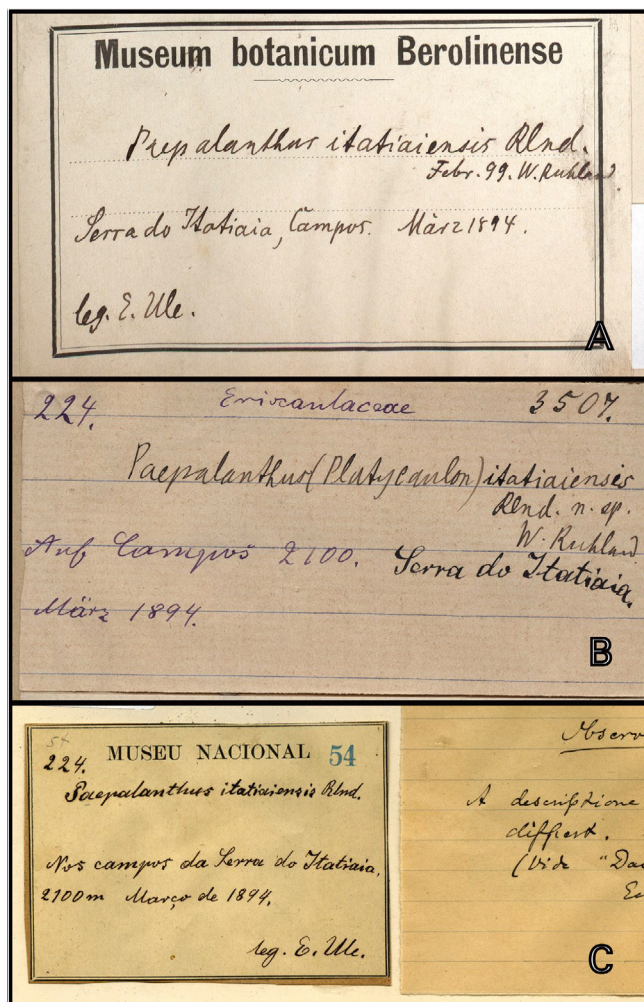 Museum botanicum Berolinense
Paepalanthus itatiaiensis Rlnd.
Febr. 99. W. Ruhland.
Serra do Itatiaia, Campos. März 1894.
leg. E. Ule.
A
224. Eriocaulaceae 3507.
Paepalanthus (Platycaulon) itatiaiensis
Rlnd. n. sp.
W. Ruhland
Auf Campos 2100. Serra do Itatiaia.
März 1894.
B
54
224. MUSEU NACIONAL 54
Paepalanthus itatiaiensis Rlnd.
Nos campos da Serra do Itatiaia,
2100m Março de 1894.
leg. E. Ule.
Observ
A descriptione
differt.
(Vide "Das
C